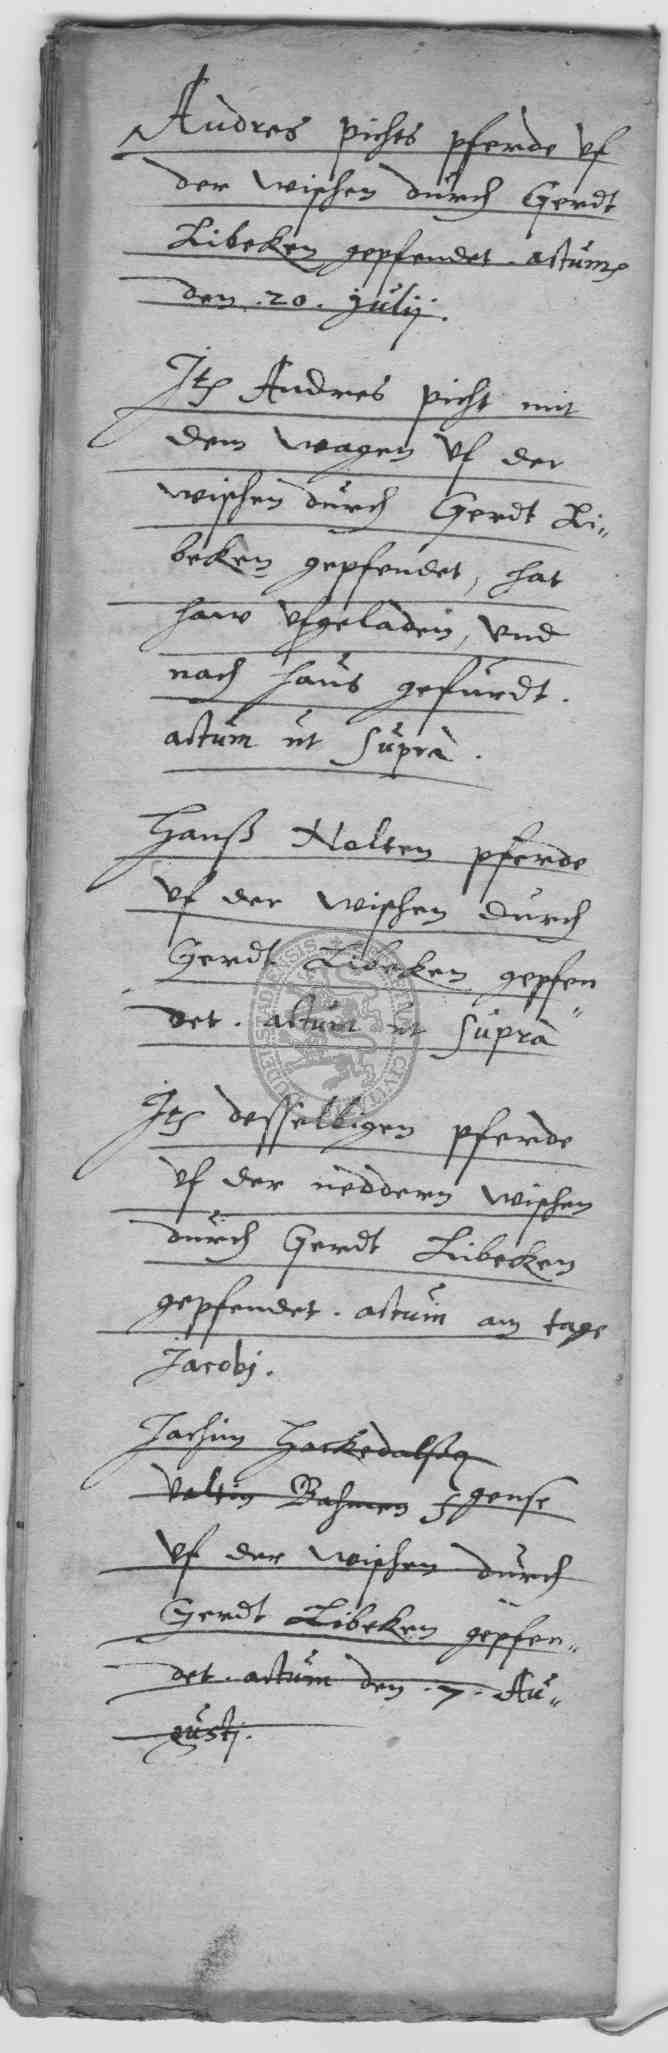 Andres pichts pferde vf
der wischen durch Gerdt
Libeken gepfendet. actum
den .20. Julij.
Jt Andres picht mit
dem wagen vf der
wischen durch Gerdt Li„
beken gepfendet, hat
haw vfgeladen, vnd
nach haus gefurdt.
actum ut supra.
Hanß Nolten pferde
vf der wischen durch
Gerdt Libeken gepfen„
det. actum ut supra
Jt desselbigen pferde
vf der neddern wischen
durch Gerdt Libeken
gepfendet. actum am tage
Jacobj.
Jachim
Valtin Bahmen gense
vf der wischen durch
Gerdt Libeken gepfen„
det. actum den .7. Au„
gustj.